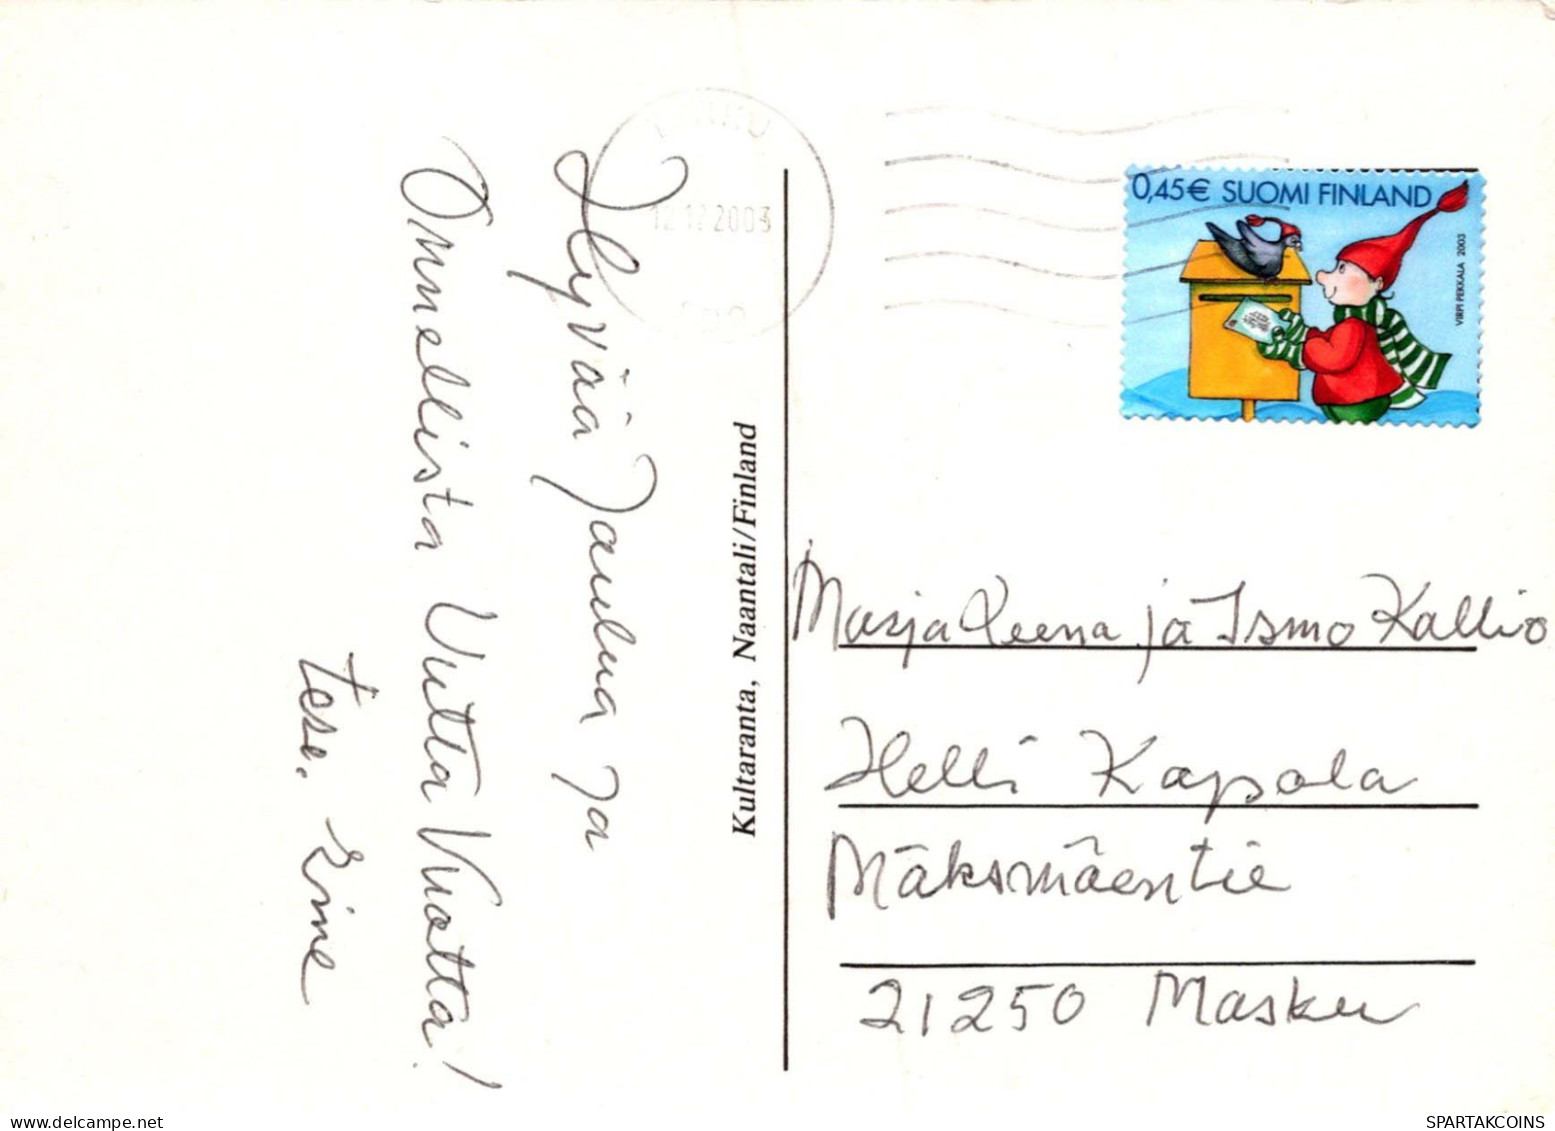 Hyvää Joulua ja
Onnellista Uutta Vuotta!
Eine
Kultaranta, Naantali/Finland
12.12.2003
0,45€ SUOMI FINLAND
VIRPI PEKKALA 2003
Marja Leena ja Ismo Kallio
Helli Kapala
Mäksmäentie
21250 Masku
SPARTAKCOINS